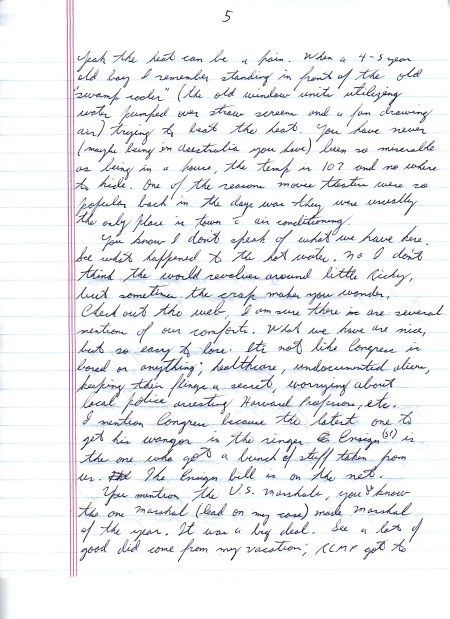 5
Yeah the heat can be a pain. When a 4-5 year
old boy I remember standing in front of the old
"swamp cooler" (the old window units utilizing
water pumped over straw screens and a fan drawing
air) trying to beat the heat. You have never
(maybe being in Australia you have) been so miserable
as being in a house, the temp is 107 and no where
to hide. One of the reasons movie theaters were so
popular back in the days was they were usually
the only place in town c air conditioning.
You know I don't speak of what we have here.
See what happened to the hot water. No I don't
think the world revolves around little Ricky,
but sometimes the crap makes you wonder.
Check out the web, I am sure there are several
mention of our comforts. What we have are nice,
but so easy to lose. Its not like Congress is
bored or anything; healthcare, undocumented aliens,
keeping their flings a secret, worrying about
local police arresting Harvard Professors, etc.
I mention Congress because the latest one to
get his wanger in the ringer Ensign (sp) is
the one who got a bunch of stuff taken from
us. The Ensign bill is on the net.
You mention the U.S. Marshals, you know
the one Marshal (lead on my case) made Marshal
of the year. It was a big deal. See a lots of
good did come from my vacation; RCMP got to